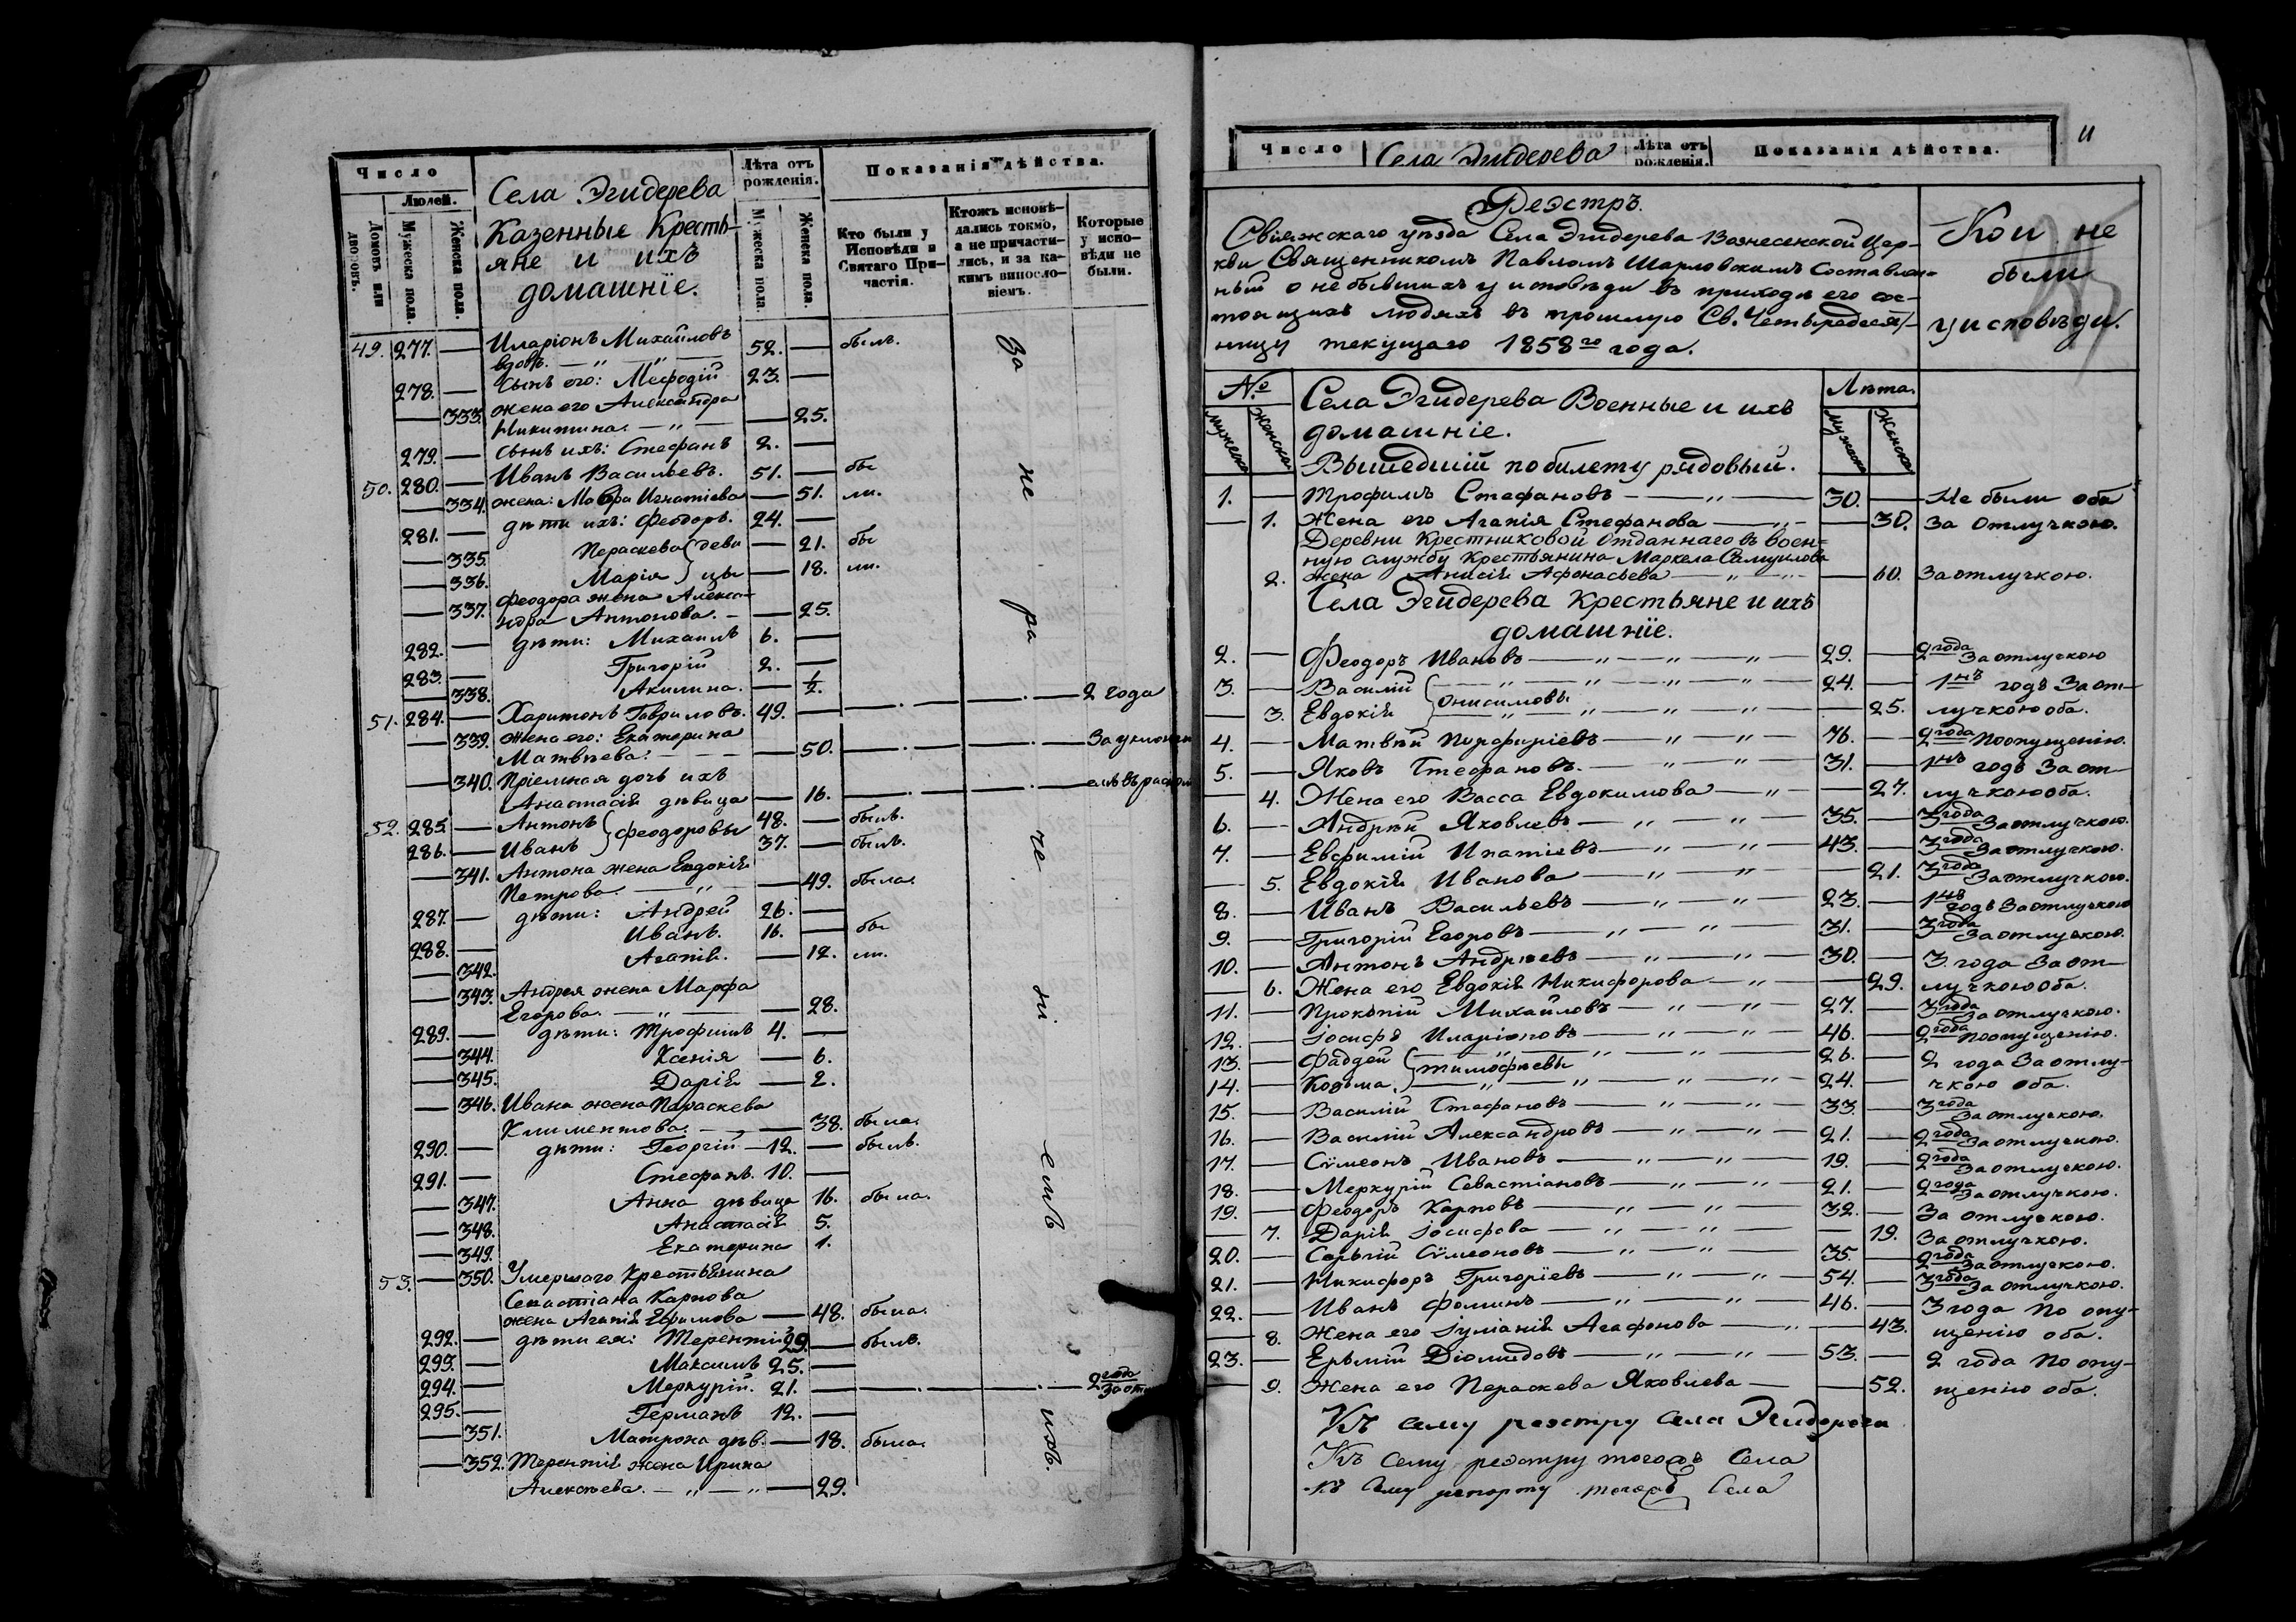 Число
Людей.
Домовъ или дворовъ.
Мужеска пола.
Женска пола.
Села Эгидерева
Казенные Кресть-
яне и ихъ
домашніе.
Лѣта отъ рожденія.
Мужеска пола.
Женска пола.
Показанія дѣйства.
Кто были у Исповѣди и Святаго Причастія.
Ктожъ исповѣдались токмо, а не причастились, и за какимъ винословіемъ.
Которые у исповѣди не были.
За не ра че ні емъ ихъ.
49. 277. — Иларіонъ Михайловъ
вдовъ. — „ — „ — 52. — былъ.
278. — Сынъ его: Меѳодій 23. —
— 333. жена его Александра
Никитина. — „ — — 25.
279. — сынъ ихъ: Стефанъ 2. —
50. 280. — Иванъ Васильевъ. 51. — бы
— 334. жена: Мавра Игнатіева — 51. ли.
281. — дѣти ихъ: Феодоръ. 24. —
— 335. Параскева } деви — 21. бы
— 336. Марія } цы — 18. ли.
— 337. Феодора жена Алекса-
ндра Антонова. — — 25.
282. — дѣти: Михаилъ 6. —
283. — Григорій 2. —
— 338. Акилина. — 1/2.
51. 284. — Харитонъ Гавриловъ. 49. — 2 года
— 339. жена его: Екатерина
Матвѣева: — — 50. За уклонен
— 340. Пріемная дочь ихъ
Анастасія дѣвица — 16. емъ въ раскол
52. 285. — Антонъ } Феодоровы 48. — былъ.
286. — Иванъ } 37. — былъ.
— 341. Антона жена Евдокія
Петрова. — „ — — 49. была.
287. — дѣти: Андрей 26. —
288. — Иванъ. 16. — бы
— 342. Агапія. — 12. ли.
— 343. Андрея жена Марфа
Егорова. — „ — — 28.
289. — дѣти: Трофимъ 4. —
— 344. Ксенія — 6.
— 345. Дарія — 2.
— 346. Ивана жена Параскева
Климентова. — „ — 38. была.
290. — дѣти: Георгій — 12. — былъ.
291. — Стефанъ. 10. —
— 347. Анна дѣвица 16. была.
— 348. Анастасія 5.
— 349. Екатерина 1.
53. — 350. Умершаго Крестьянина
Севастіана Карпова
жена Агапія Ефимова — 48. была.
292. — дѣти ея: Терентій 29. — былъ.
293. — Максимъ 25. —
294. — Меркурій. 21. — 2 года За от
295. — Германъ 12. —
— 351. Матрона дѣв. — 18. была.
— 352. Терентія жена Ирина
Алексѣева. — „ — „ — 29.
11
Число
Села Эгидерева
Лѣта отъ рожденія.
Показанія дѣйства.
Реэстръ.
Свіяжскаго уѣзда Села Эгидерева Вознесенской Цер-
кви Священникомъ Павломъ Шарловскимъ Составлен-
ный о небывшихъ у исповѣди въ приходѣ его сос-
тоящихъ людяхъ въ прошлую Св. Четыредесят-
ницу текущаго 1858го года.
Кои не
были
у исповѣди.
№
Мужеска
Женска
Села Эгидерева Военные и ихъ
домашніе.
Вышедшій по билету рядовый.
Лѣта.
Мужска
Женска
1. — Трофимъ Стефановъ — „ — 30. — Не были оба
— 1. Жена его Агапія Стефанова — „ — — 30. за отлучкою.
Деревни Крестниковой отданнаго въ воен-
ную службу Крестьянина Маркела Самуилова
2. жена Анисія Афонасьева — „ — „ — — 60. За отлучкою.
Села Эгидерева Крестьяне и ихъ
домашніе.
2. — Феодоръ Ивановъ — „ — „ — „ — 29. — 2 года За отлучкою
3. — Василій } Онисимовы — „ — „ — 24. — 1нъ годъ За от-
— 3. Евдокія } — „ — „ — — 25. лучкою оба.
4. — Матвѣй Порфиріевъ — „ — „ — 76. — 2 года По опущенію.
5. — Яковъ Стефановъ. — „ — „ — 31. — 1нъ годъ За от-
— 4. Жена его Васса Евдокимова — „ — — 27. лучкою оба.
6. — Андрѣй Яковлевъ — „ — „ — 35. — 3 года За отлучкою.
7. — Евфимій Ипатіевъ — „ — „ — 43. — 3 года За отлучкою.
— 5. Евдокія Иванова — „ — „ — — 21. 3 года За отлучкою.
8. — Иванъ Васильевъ — „ — „ — 23. — 1нъ годъ За отлучкою
9. — Григорій Егоровъ — „ — „ — 31. — 3 года За отлучкою.
10. — Антонъ Андрѣевъ — „ — „ — 30. — 3 года За от-
— 6. Жена его Евдокія Никифорова — „ — — 29. лучкою оба.
11. — Прокопій Михайловъ — „ — „ — 27. — 3 года За отлучкою.
12. — Іосифъ Иларіоновъ — „ — „ — 46. — 2 года По опущенію.
13. — Фаддей } Тимофѣевы — „ — „ — 26. — 2 года За отлу-
14. — Козьма. } — „ — „ — 24. — чкою оба.
15. — Василій Стефановъ — „ — „ — 33. — 3 года За отлучкою.
16. — Василій Александровъ — „ — „ — 21. — 2 года За отлучкою.
17. — Сѵмеонъ Ивановъ — „ — „ — 19. — 2 года За отлучкою.
18. — Меркурій Севастіановъ — „ — „ — 21. — 2 года За отлучкою.
19. — Феодоръ Карповъ — „ — „ — 32. — За отлучкою.
— 7. Дарія Іосифова — „ — „ — 19. За отлучкою.
20. — Сергій Сѵмеоновъ — „ — „ — 35 — 2 года За отлучкою.
21. — Никифоръ Григоріевъ — „ — „ — 54. — 3 года За отлучкою.
22. — Иванъ Фоминъ — „ — „ — 46. — 3 года По опу-
— 8. Жена его Іуліанія Агафонова — „ — 43. щенію оба.
23. — Ерьмій Діомидовъ — „ — „ — 53. — 2 года По опу-
— 9. Жена его Параскева Яковлева — — 52. щенію оба.
Къ сему реэстру села Эгидерева
Къ сему реэстру тогожъ Села
-къ Сему репорту тогожъ Села